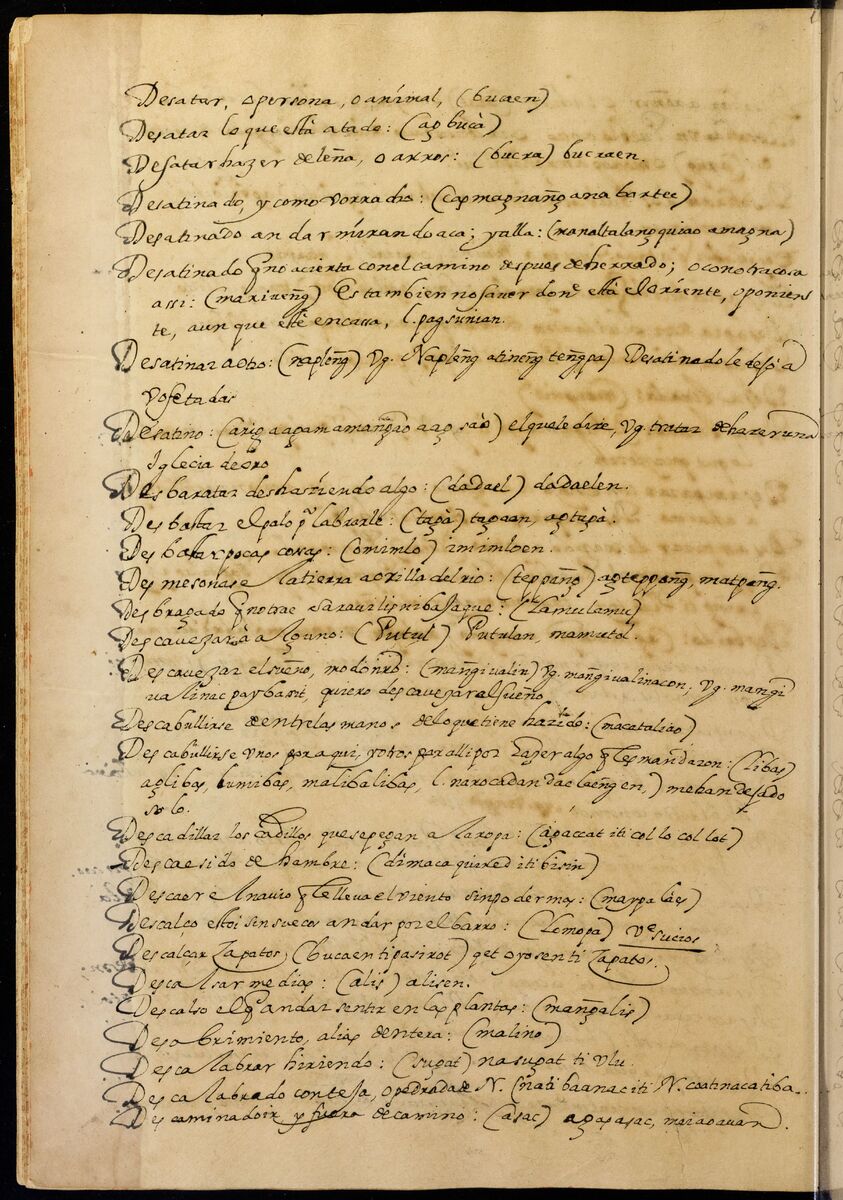 Desatar, o persona, o animal, (bucaen)
Desatar lo que està atado: (ag bucà)
Desatar hazer de leña, o arros: (bucra) bucraen.
Desatinado, y como vorracho: (cap magnang̃ ana bartec)
Desatinado andar mirando aca; y alla: (
Desatinado q̃ no acierta con el camino despues de herrado; o con otra cosa
assi: (marireng̃) Es tambien no saver donᵉ està el oriente, o ponien
te, aun que estè en cassa, l. pagsunian.
Desatinar a otro: (napleng̃) Vg. Napleng̃ atineng̃ teng̃pa) Desatinado le dejó à
vofetadas
Desatino: ( el que le dire, Vg. tratar de hazer una
Iglecia de oro
Desbaratar deshasiendo algo: (dadael) dadaelen.
Desbastar el palo pᵃ labrarlo: (tapà) tapaan, ag tapà.
Desbastar pocas cosas: (omimlo) imimloen.
Desmesonase la tierra a orilla del rio: (teppang̃) ag teppang̃, matpang̃.
Desbragado q̃ no trae saraviles ni bajaque: (lamulamu)
Descavezar à alguno: (Putul) Putulan, mamutol.
Descavezar el sueño, modorro: (mang̃ivalin) Vg. mang̃ivalinacon; Vg. mang̃i
valinac pay bassit, quiero descavezar el sueño
Descabullirse de entre las manos de lo que tiene hazido: (macatalião)
Descabullirse vnos por aqui, y otros por alli por hazer algo q̃ les mandaron: (libas)
ag libas, lumibas, malibalibas, l. me han dejado
solo.
Descadillar los Cadillos que se pegan a la ropa: (agaccat iti collo collot)
Descaesido de hambre: (dimaca quired iti bisin)
Descaer el navio q̃ le lleva el viento sin poder mas: (maypalaes)
Descalço estoi sin suecos andar por el barro: (lemopa) Vᵉ sucios
Descalçar Zapatos (bucaen ti pasirot) get oyosen ti Zapatos.
Descalsar medias: (alis) alisen.
Descalso el q̃ andar sentir en las plantas: (mang̃alis)
Desabrimiento, alias dentera: (malino)
Descalabrar hiriendo: (sugat) nasugat ti vlu.
Descalabrado con teja, o pedrada de N. (natibaanac iti N. coatinacatiba.
Descaminado ir y fuera de camino: (asac) agasasac,